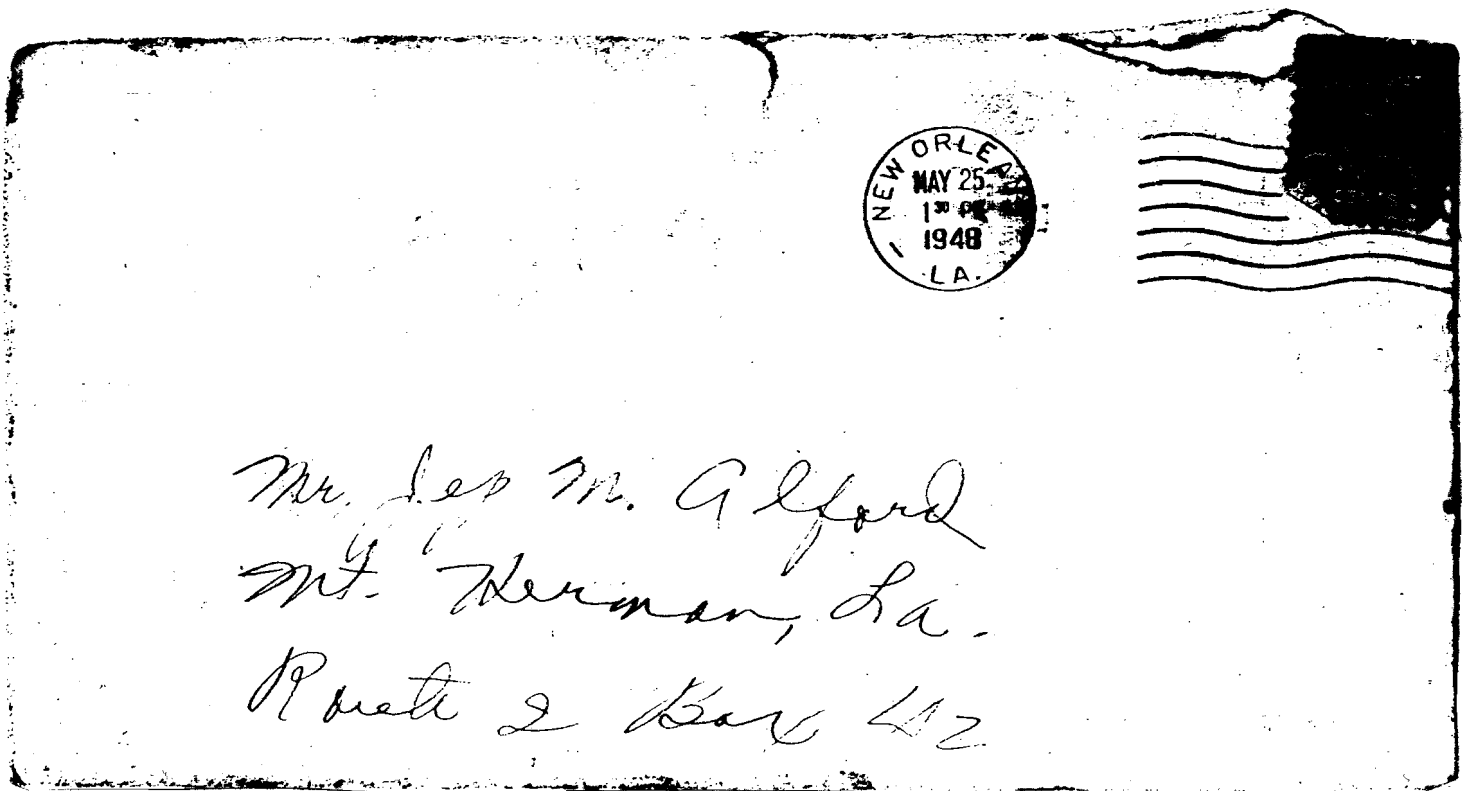 NEW ORLEANS
MAY 25
1³⁰ PM
1948
LA.
Mr. Jep M. Alford
Mt. Herman, La.
Route 2 Box